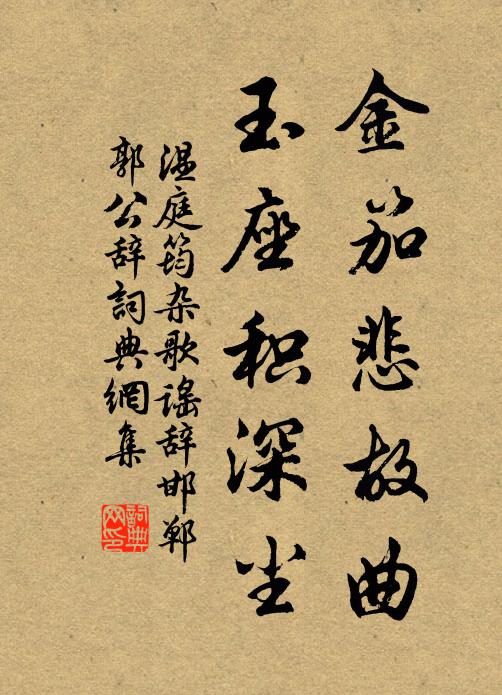 金笳悲故曲
玉座积深尘
温庭筠杂歌谣辞邯郸
郭公辞詞典網集
詞典网印